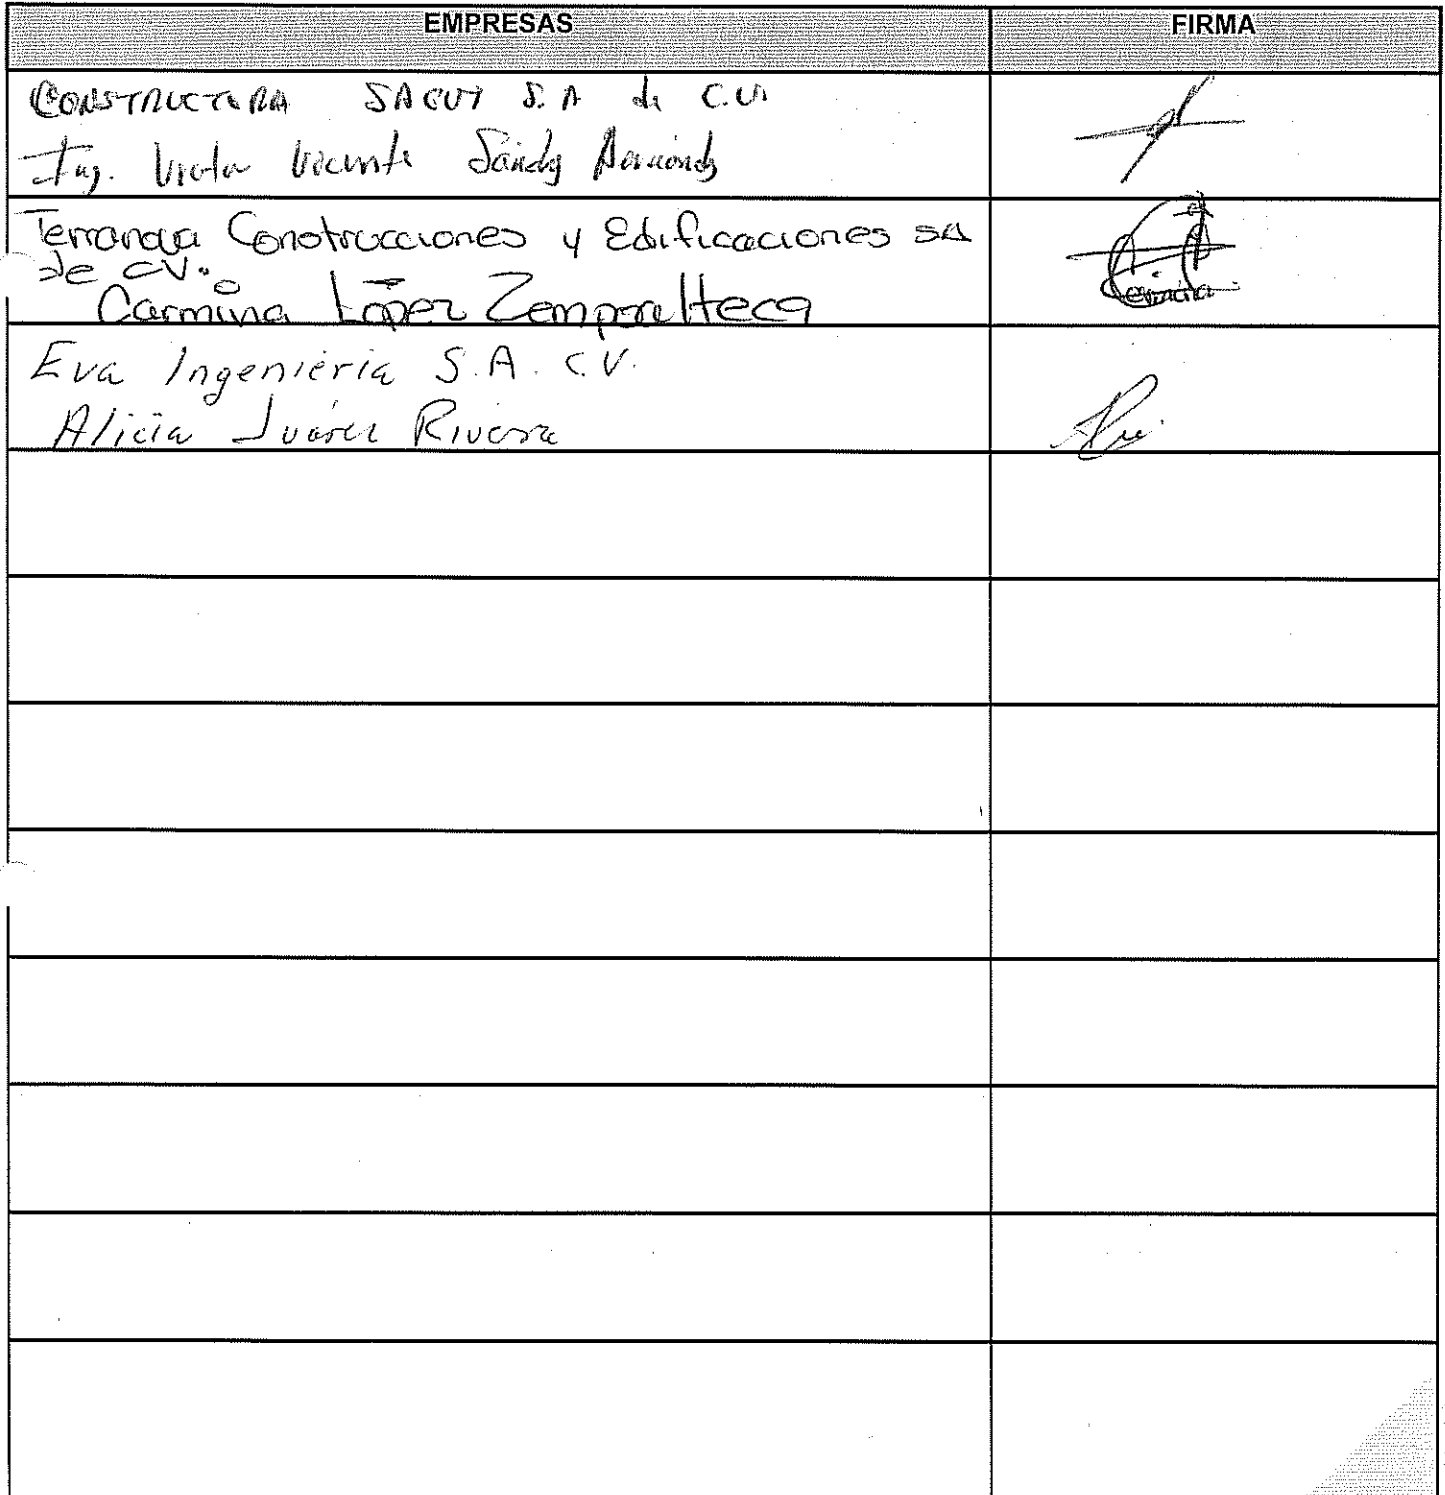 EMPRESAS
FIRMA
CONSTRUCTORA SACVI S.A de C.V.
Ing. Victor Vicente Sánchez Hernández
Terranova Construcciones y Edificaciones SA
de CV.
Carmina López Zempoalteca
Eva Ingenieria S.A. C.V.
Alicia Juárez Rivera